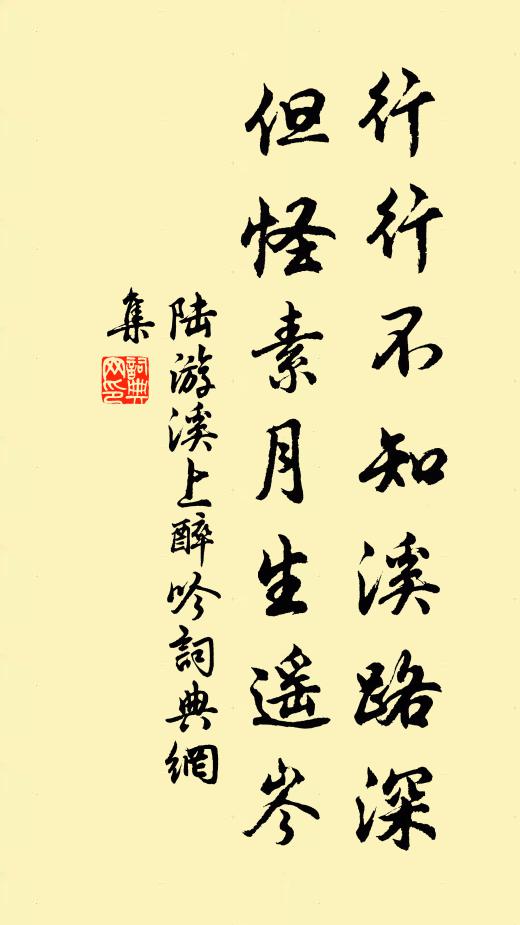 行行不知溪路深
但怪素月生遥岑
陆游溪上醉吟詞典網
集
詞典网印